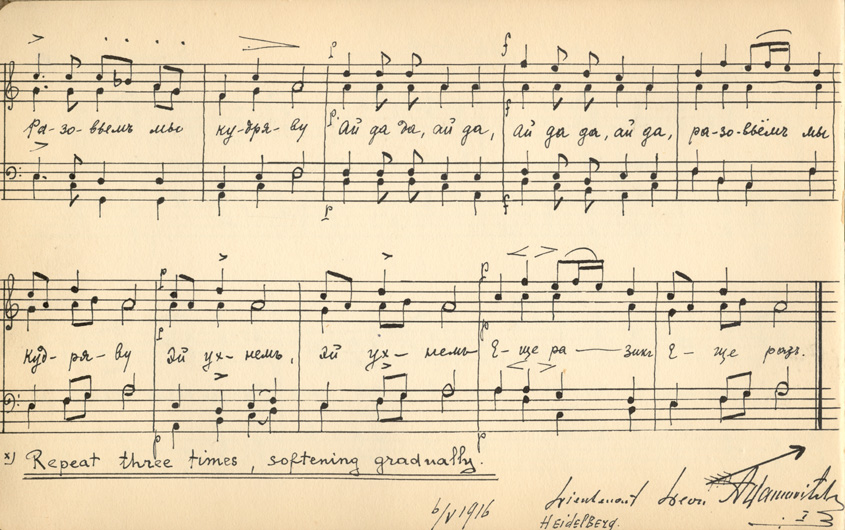 Ра-зо-вьемъ мы ку-дря-ву Ай да да, ай да, Ай да да, ай да, ра-зо-вьёмъ мы
куд-ря-ву Эй ух-немъ, Эй ух-немъ Е-ще ра-зикъ Е-ще разъ.
x) Repeat three times, softening gradually.
6/V 1916 Lieutenant Leon
Heidelberg.